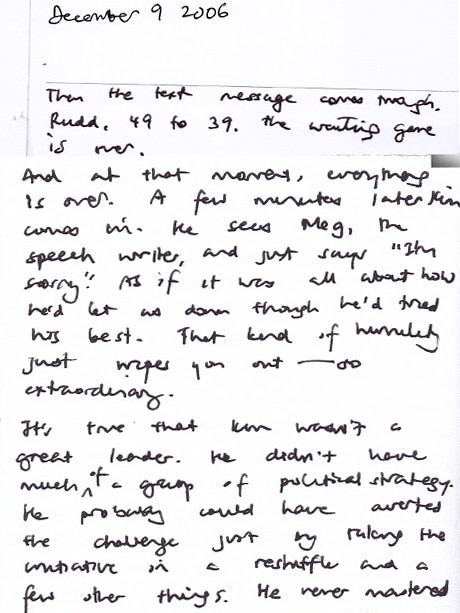 December 9 2006
Then the text message comes through.
Rudd, 49 to 39. The waiting game
is over.
And at that moment, everything
is over. A few minutes later Kim
comes in. He sees Meg, the
speech writer, and just says "I'm
sorry". As if it was all about how
he'd let us down though he'd tried
his best. That kind of humility
just wipes you out — so
extraordinary.
It's true that Kim wasn't a
great leader. He didn't have
much of a grasp of political strategy.
He probably could have averted
the challenge just by taking the
initiative in a reshuffle and a
few other things. He never mastered